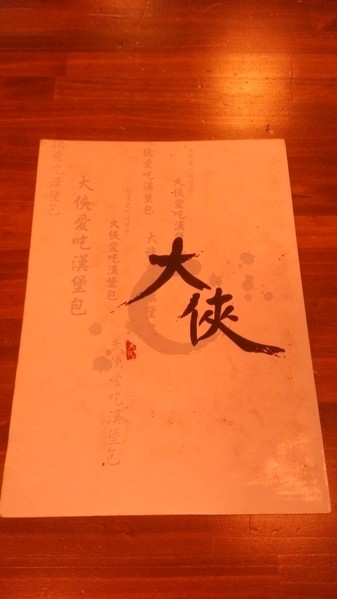 大俠
大俠愛吃漢堡包
大俠愛吃漢堡包
大俠愛吃漢堡包
俠愛吃漢堡包
大俠愛吃漢堡包
愛吃漢堡包